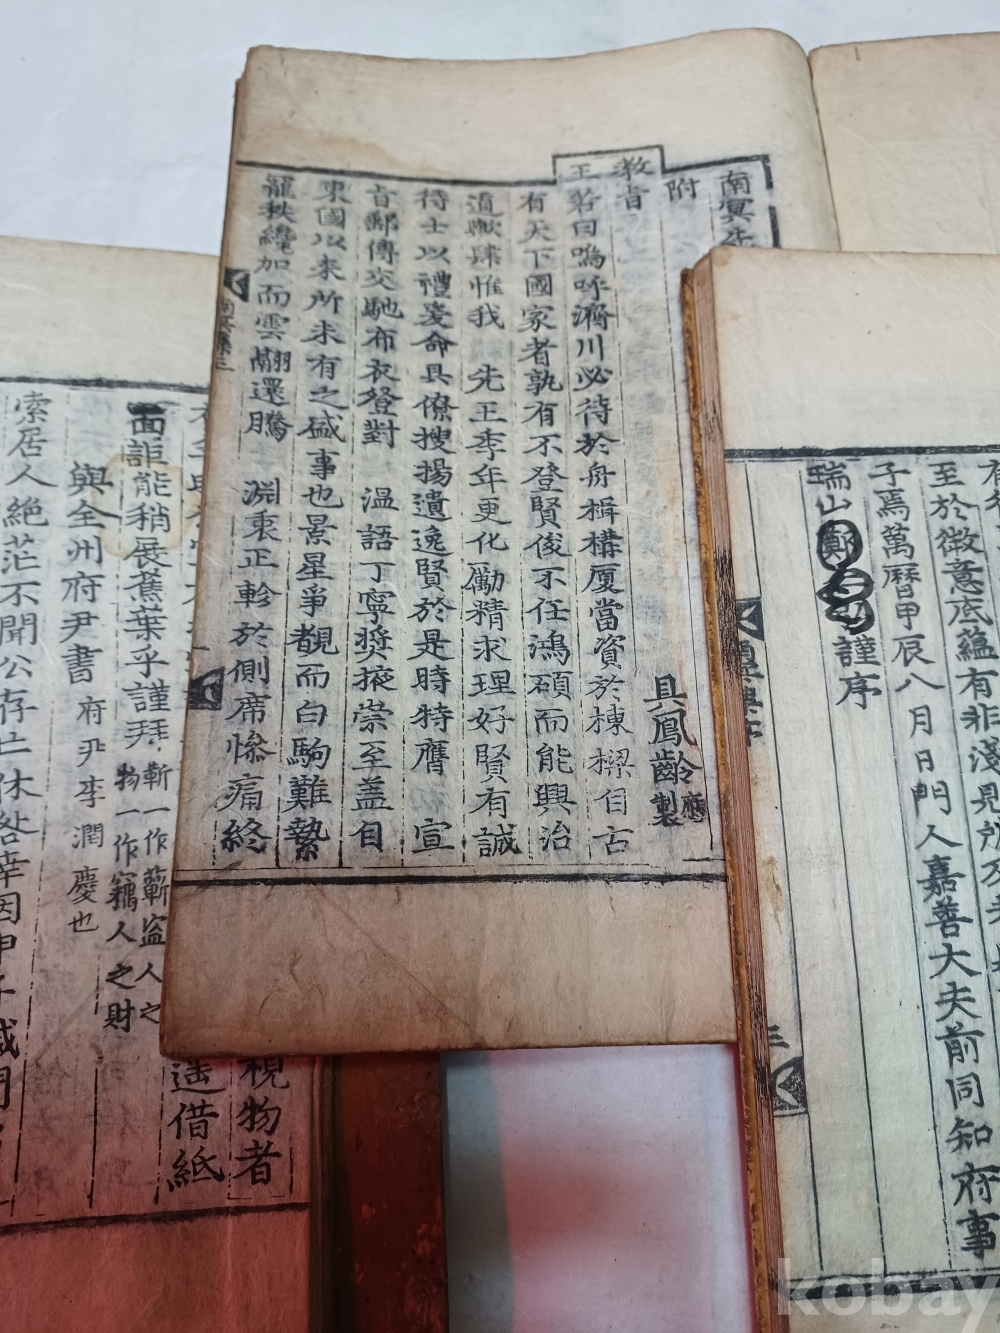 至於微意底蘊有非淺見所
子焉萬曆甲辰八月日門人嘉善大夫前同知府事
瑞山鄭 謹序
三
南冥
附
教旨
具鳳齡應製
王若曰嗚呼濟川必待於舟楫構厦當資於棟樑自古
有天下國家者孰有不登賢俊不任鴻碩而能興治
道猷肆惟我 先王季年更化勵精求理好賢有誠
待士以禮爰命具僚搜揚遺逸賢於是時特膺 宣
旨郵傳交馳布衣登對 溫語丁寧奬掖崇至蓋自
東國以來所未有之盛事也景星爭覩而白駒難縶
寵秩纔加而雲翮還騰 淵衷正軫於側席慘痛終
視物者
遥借紙
面詎能稍展蕉葉乎謹拜 蘄一作蘄盜人之物一作竊人之財
與全州府尹書 府尹李潤慶也
索居人絶茫不聞公存亡休咎幸因
kobay